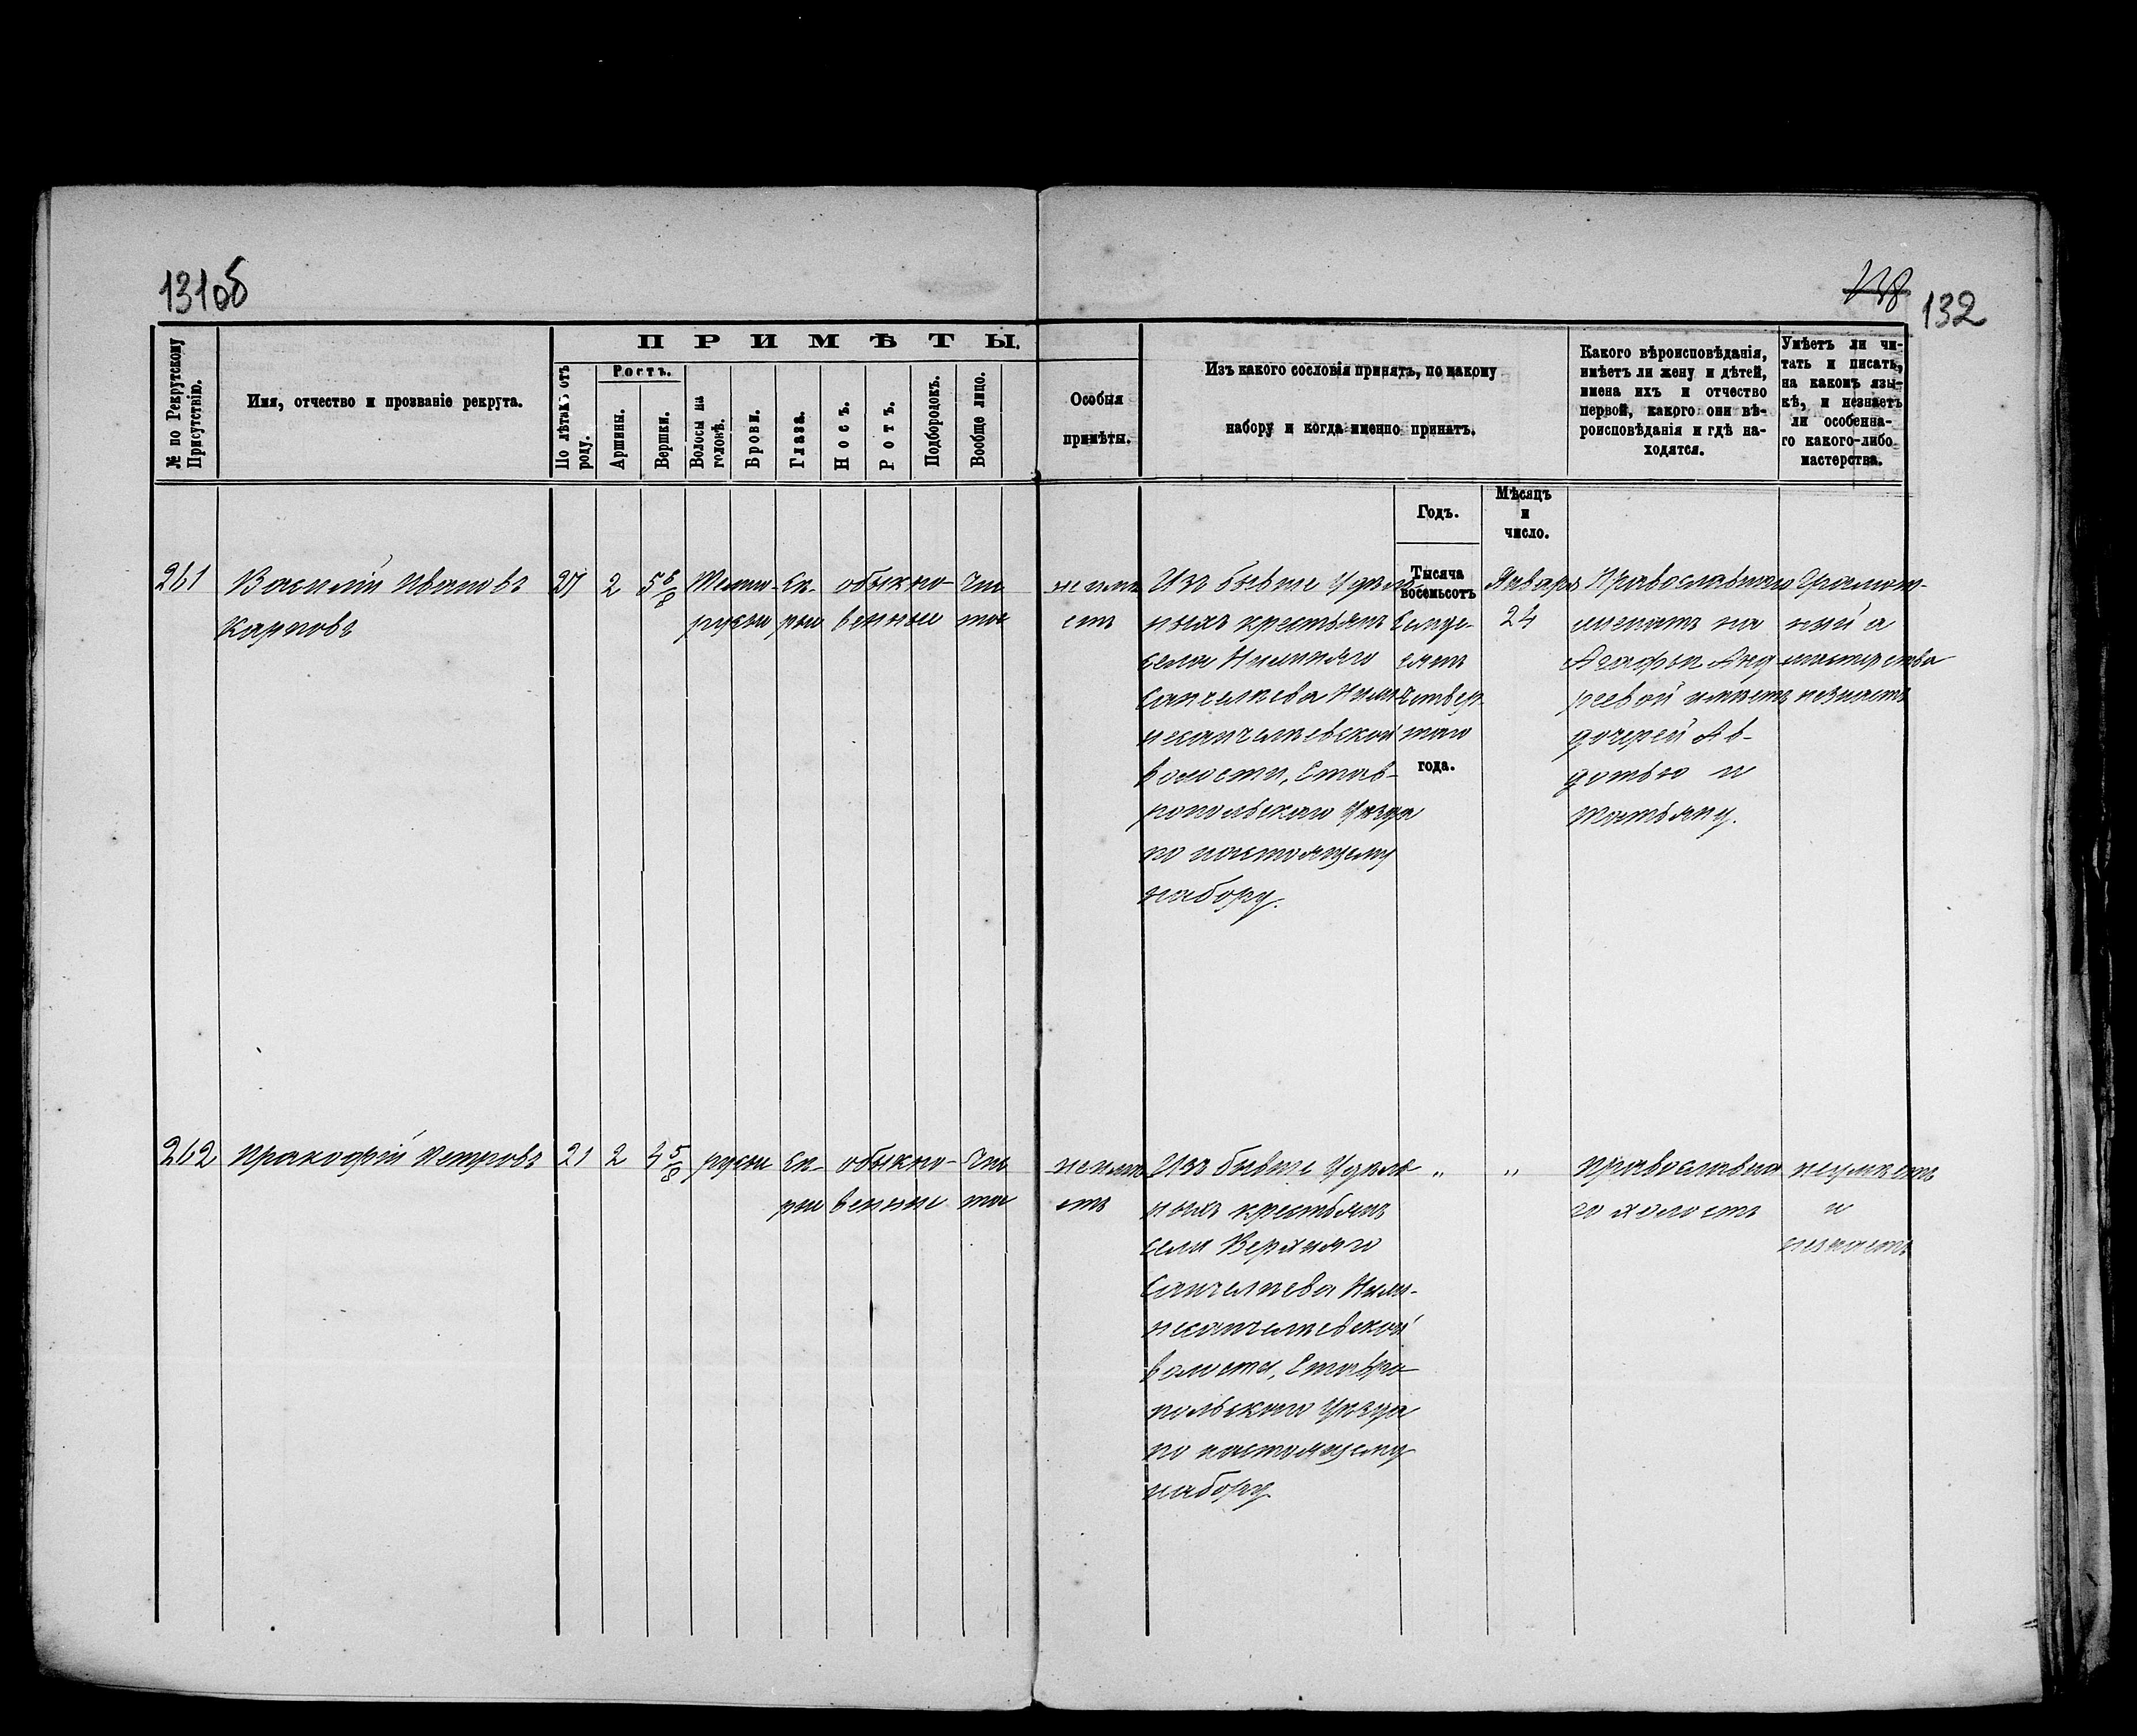 131об
138 132
П Р И М Ѣ Т Ы.
№ по Рекрутскому Присутствію.
Имя, отчество и прозваніе рекрута.
По лѣтамъ отъ роду.
Ростъ.
Аршины.
Вершки.
Волосы на головѣ.
Брови.
Глаза.
Носъ.
Ротъ.
Подбородокъ.
Вообще лицо.
Особыя
примѣты.
Изъ какого сословія принятъ, по какому
набору и когда именно принятъ.
Какого вѣроисповѣданія,
имѣетъ ли жену и дѣтей,
имена ихъ и отчество
первой, какого они вѣ-
роисповѣданія и гдѣ на-
ходятся.
Умѣетъ ли чи-
тать и писать,
на какомъ язы-
кѣ, и незнаетъ
ли особенна-
го какого-либо
мастерства.
Годъ.
Мѣсяцъ
и
число.
261
Василій Ивановъ
Карповъ
27
2
5 6/8
Темно-
русы
Сѣ-
рыи
обыкно-
венныи
Чис
тое
неимѣ
етъ
Изъ бывше Удѣль
ныхъ крестьянъ
села Нижняго
Санчелѣева Ниж-
несанчелѣевской
волости, Став-
ропольскаго Уѣзда
по настоящему
набору.
Тысяча
восемьсотъ
Семде-
сятъ
четвер
таго
года.
Января
24
Православнаго
женатъ на
Агафьи Анд
реевой имѣетъ
дочерей Ав-
дотью и
Татьяну.
Грамот-
ный а
мастерства
незнаетъ
262
Пракофій Петровъ
21
2
4 5/8
русы
Сѣ-
рыи
обыкно-
венные
Чис
тое
неимѣ
етъ
Изъ бывше Удѣлѣ
ныхъ крестьянъ
села Верхняго
Санчелѣева Ниж-
несанчелѣевской
волости, Ставро-
польскаго Уѣзда
по настоящему
набору
"
"
Православна
го холостъ
неумѣетъ
и
незнаетъ